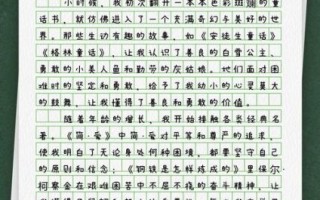 小时候，我初次翻开一本本色彩斑斓的童
话书，就仿佛进入了一个充满奇幻与美好的世
界。那些生动有趣的故事，如《安徒生童话》
《格林童话》，让我认识了善良的白雪公主、
勇敢的小美人鱼和勤劳的灰姑娘。她们面对困
难时的坚定和勇敢，给了我幼小的心灵莫大
的鼓舞，让我懂得了善良和勇敢的价值。
随着年龄的增长，我开始接触各类经典名
著。《简·爱》中简·爱对平等和尊严的追求，
使我明白了无论身处何种困境，都要坚守自己
的原则和信念；《钢铁是怎样炼成的》里保尔·
柯察金在艰难困苦中不屈不挠的奋斗精神，让